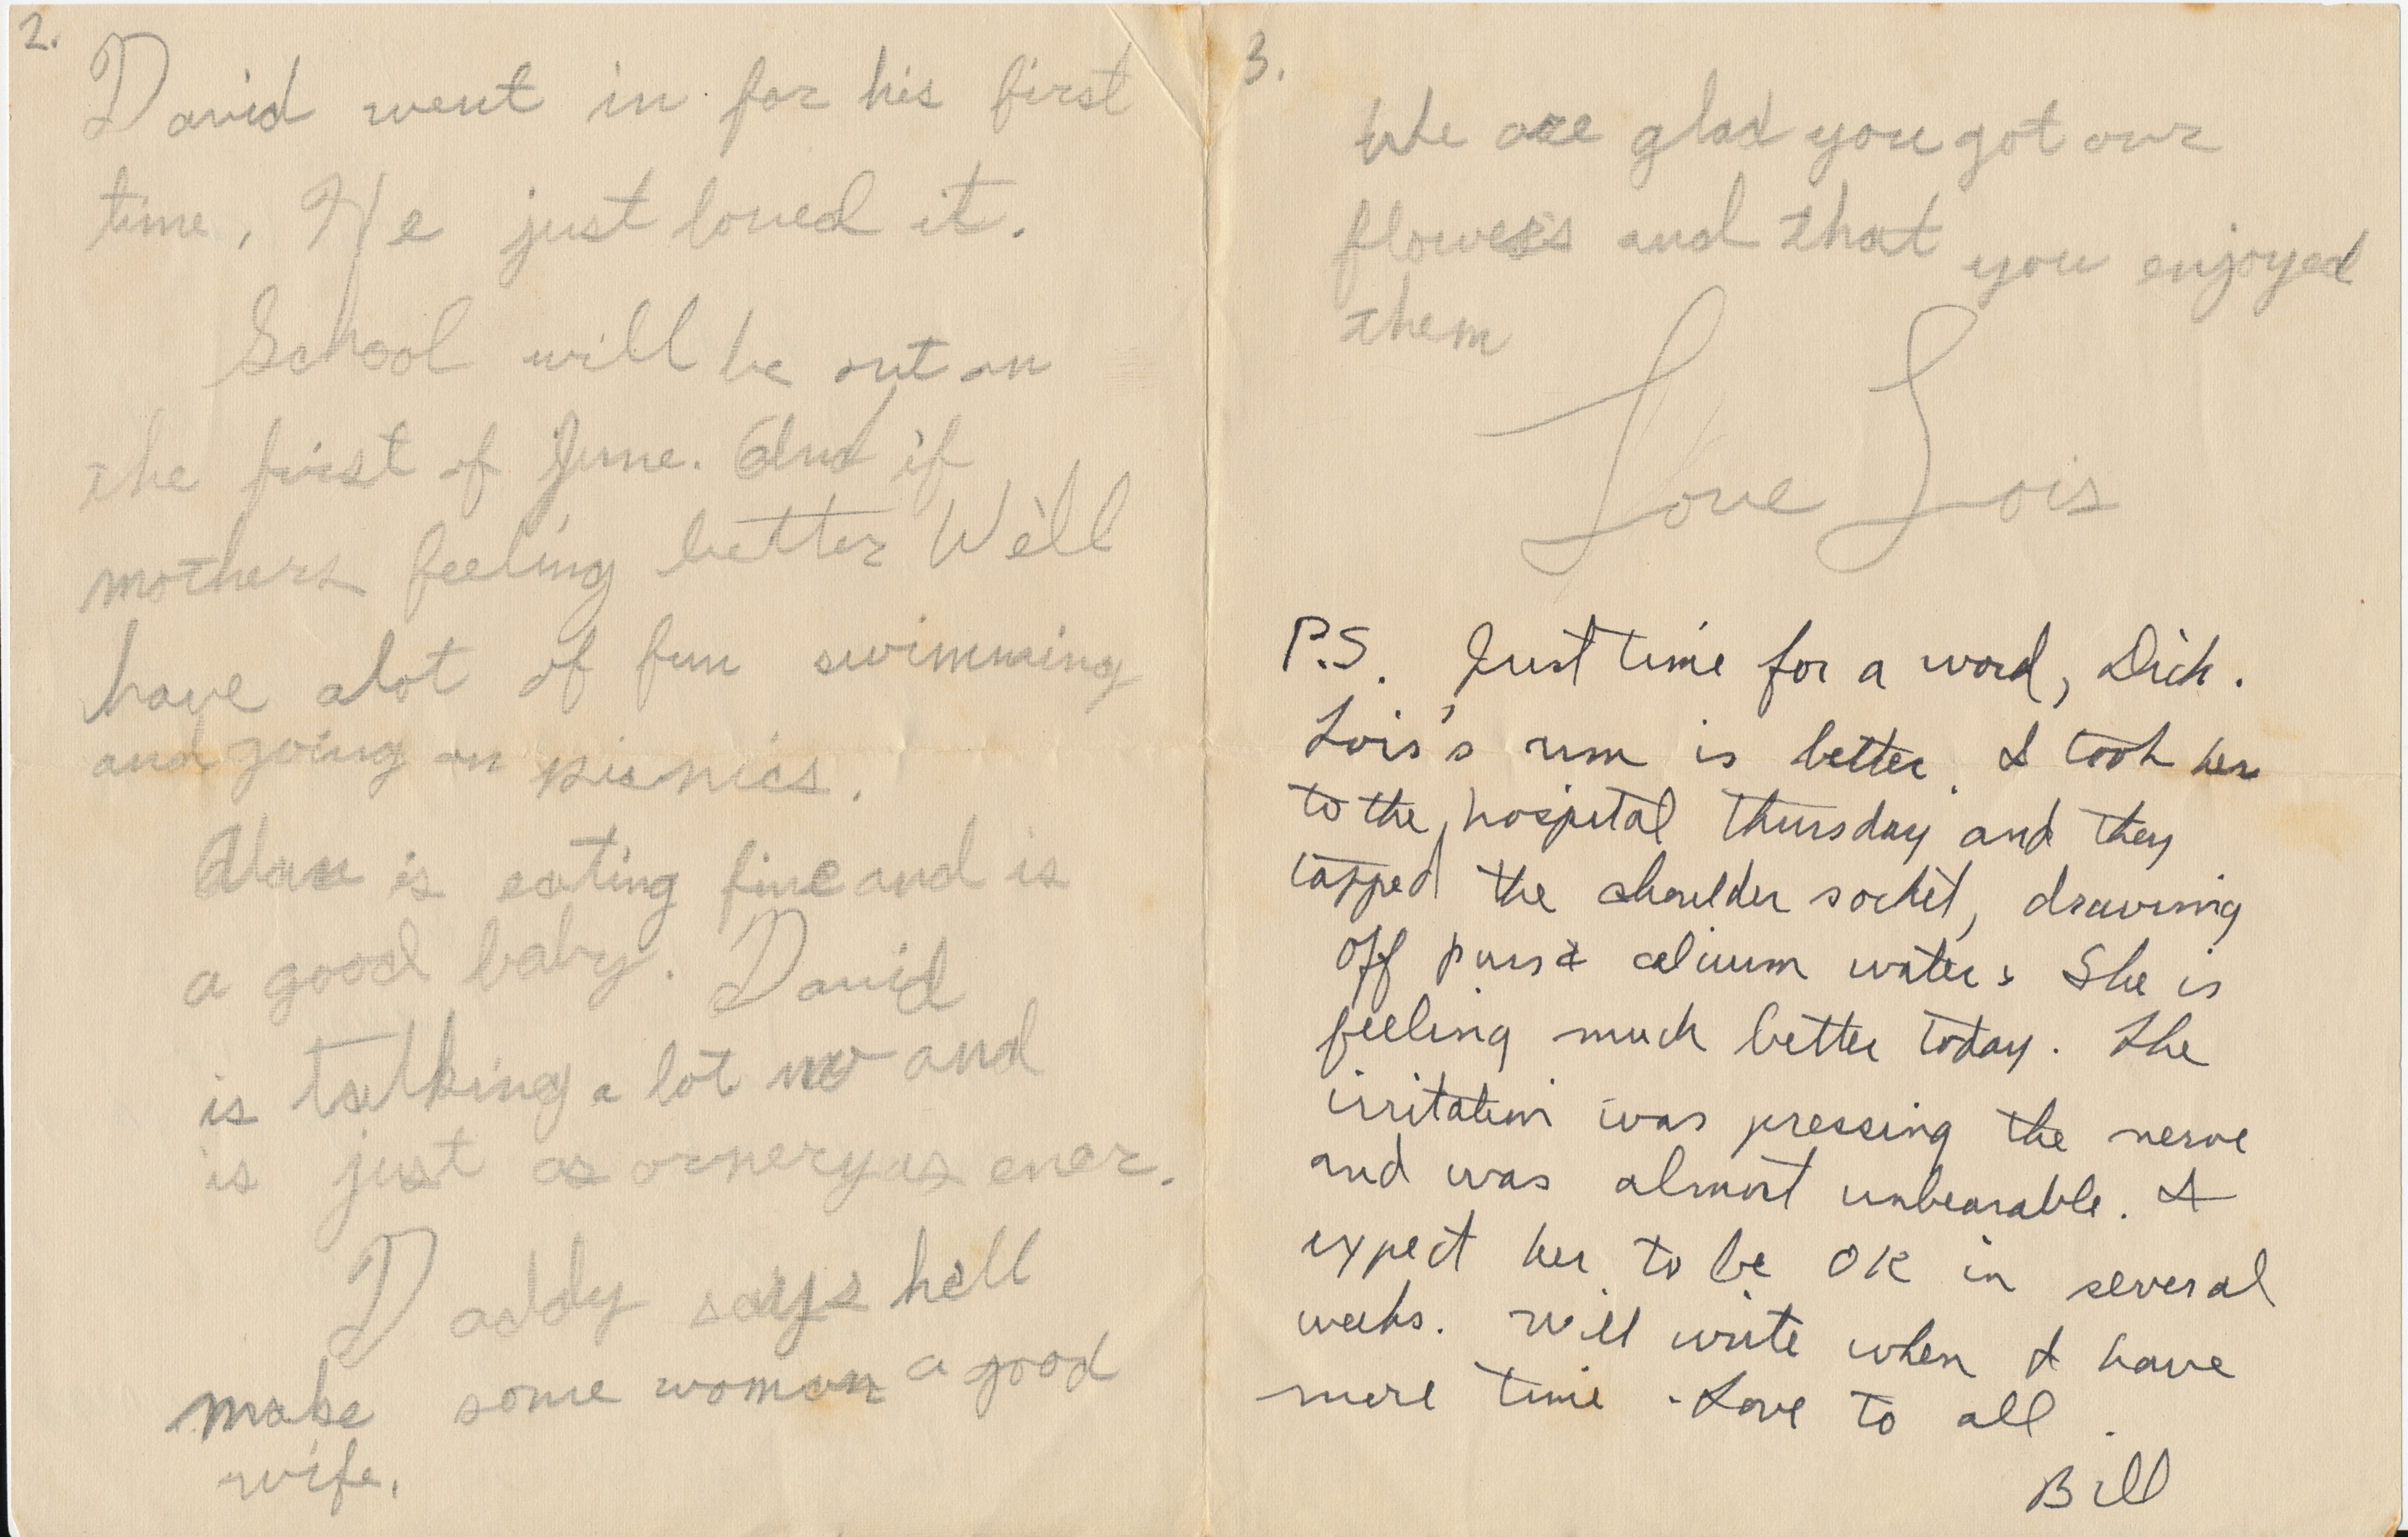 2.
David went in for his first
time. He just loved it.
School will be out on
the first of June. And if
mothers feeling better We'll
have alot of fun swimming
and going on picnics.
Alan is eating fine and is
a good baby. David
is talking a lot now and
is just as ornery as ever.
Daddy says he'll
make some woman a good
wife.
3.
We are glad you got our
flowers and that you enjoyed
them
Love Lois
P.S. Just time for a word, Dick.
Lois's arm is better. I took her
to the hospital Thursday and they
tapped the shoulder socket, drawing
off pus & calcium water. She is
feeling much better today. The
irritation was pressing the nerve
and was almost unbearable. I
expect her to be OK in several
weeks. Will write when I have
more time. Love to all.
Bill